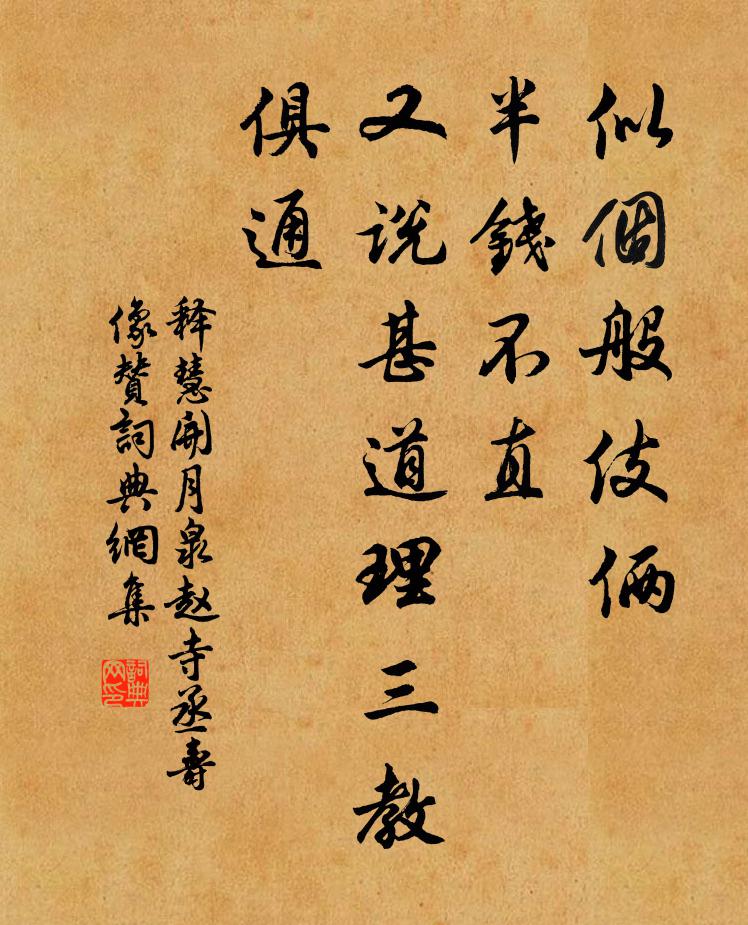 似個般伎倆
半錢不直
又说甚道理三教
俱通
释慧開月泉赵寺丞壽
像贊詞典網集
詞典
网印